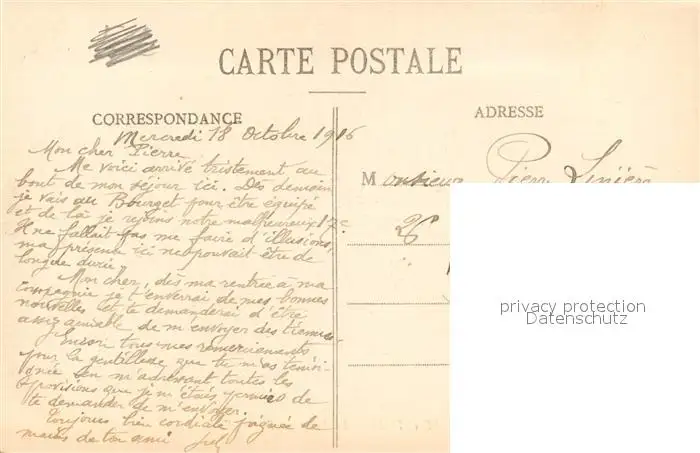 CARTE POSTALE
CORRESPONDANCE
ADRESSE
Mercredi 18 Octobre 1916
Mon cher Pierre
Me voici arrivé tristement au
bout de mon séjour ici. Dès demain
je vais au Bourget pour être équipé
et de là je rejoins notre malheureux 17e
Il ne fallait pas me faire d'illusions,
ma présence ici ne pouvait être de
longue durée
Mon cher, dès ma rentrée à ma
compagnie je t'enverrai de mes bonnes
nouvelles et te demanderai d'être
assez aimable de m'envoyer des tiennes
Encore tous mes remerciements
pour la gentillesse que tu m'as témoi-
gnée en m'adressant toutes les
provisions que je m'étais permis de
te demander de m'envoyer.
Toujours bien cordiale poignée de
mains de ton ami
Monsieur Pierre
26
privacy protection
Datenschutz